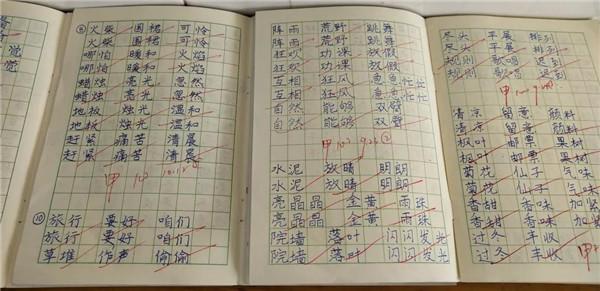 觉
觉
⑧ 火柴 围裙 可怜
火柴 围裙 可怜
哪怕 暖和 火焰
哪怕 暖和 火焰
蜡烛 亮光 忽然
蜡烛 亮光 忽然
地板 烛光 温和
地板 烛光 温和
赶紧 痛苦 清晨
赶紧 痛苦 清晨
甲
⑩ 旅行 要好 咱们
旅行 要好 咱们
草堆 作声 偷偷
阵雨 荒野 跳舞
阵雨 荒野 跳舞
狂吹 功课 放假
狂吹 功课 放假
互相 狂风 鱼 忙
互相 狂风 鱼 忙
自然 能够 双臂
自然 能够 双臂
甲
水泥 放晴 明朗
水泥 放晴 明朗
亮晶晶 金黄 雨珠
亮晶晶 金黄 雨珠
院墙 落叶 闪闪发光
院墙 落叶 闪闪发光
尽头 平展 排列
尽头 平展 排列
规则 歌唱 迟到
规则 歌唱 迟到
甲
清凉 留意 颜料
清凉 留意 颜料
枫叶 邮票 果树
枫叶 邮票 果树
菊花 仙子 气味
菊花 仙子 气味
香甜 香味 加紧
香甜 香味 加紧
过冬 丰收
过冬 丰收
甲